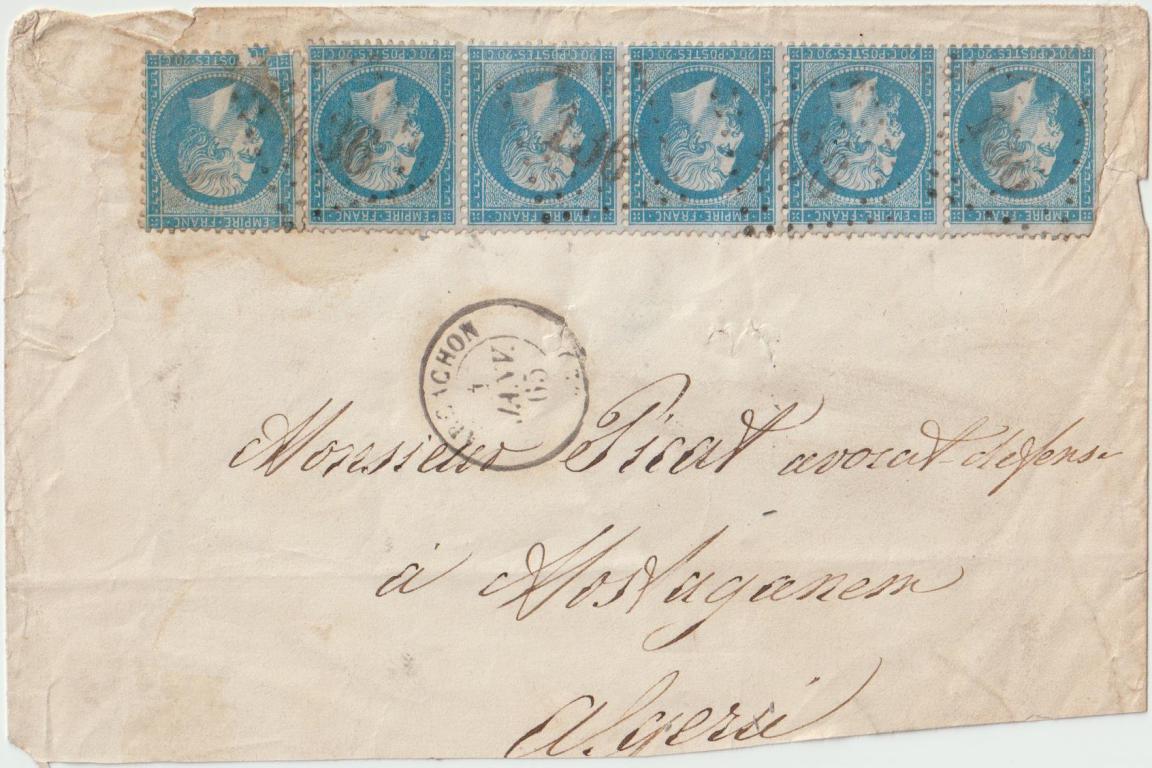 20 C POSTES 20 C
EMPIRE FRANC
20 C POSTES 20 C
EMPIRE FRANC
20 C POSTES 20 C
EMPIRE FRANC
20 C POSTES 20 C
EMPIRE FRANC
20 C POSTES 20 C
EMPIRE FRANC
20 C POSTES 20 C
EMPIRE
ARCACHON
JANV.
65
Monsieur Picat avocat-défens
à Mostaganem
Algerie